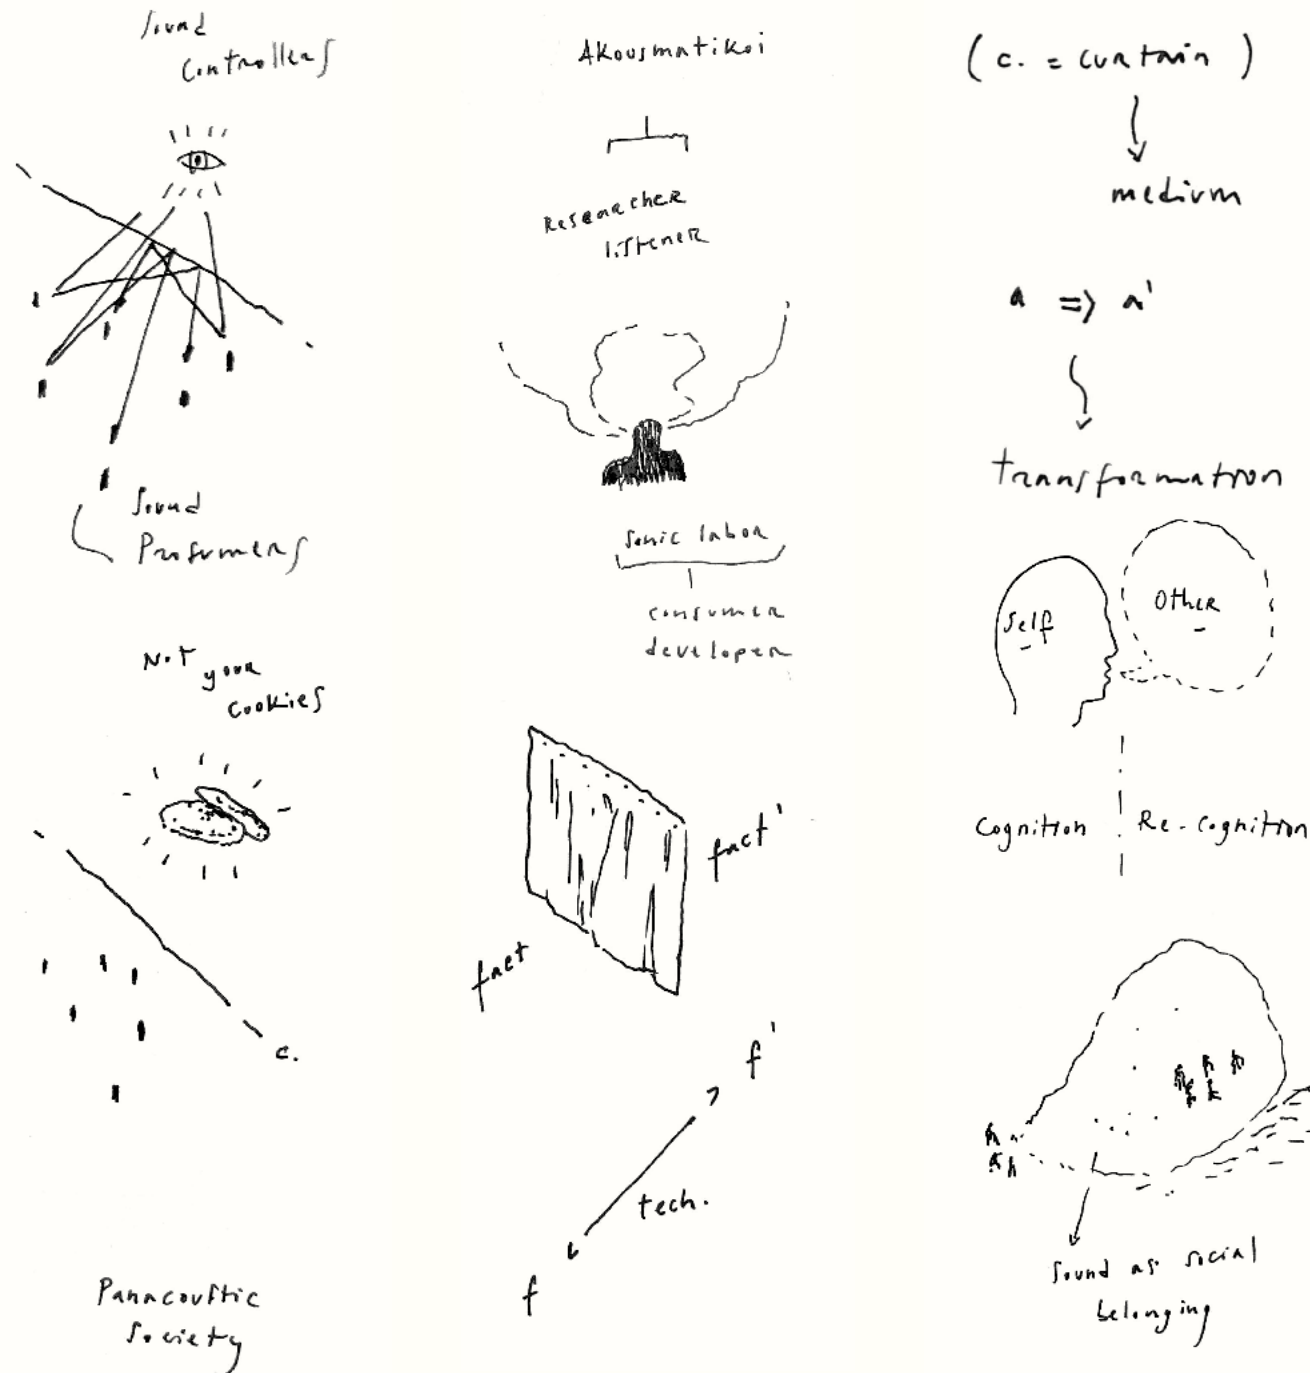 Sound
Controllers
Sound
Prosumers
Not your
cookies
c.
Panacoustic
Society
Akousmatikoi
Researcher
listener
Sonic labor
consumer
developer
fact'
fact
f'
tech.
f
(c. = curtain)
medium
a => a'
transformation
Self
Other
Cognition
Re-cognition
Sound as social
belonging